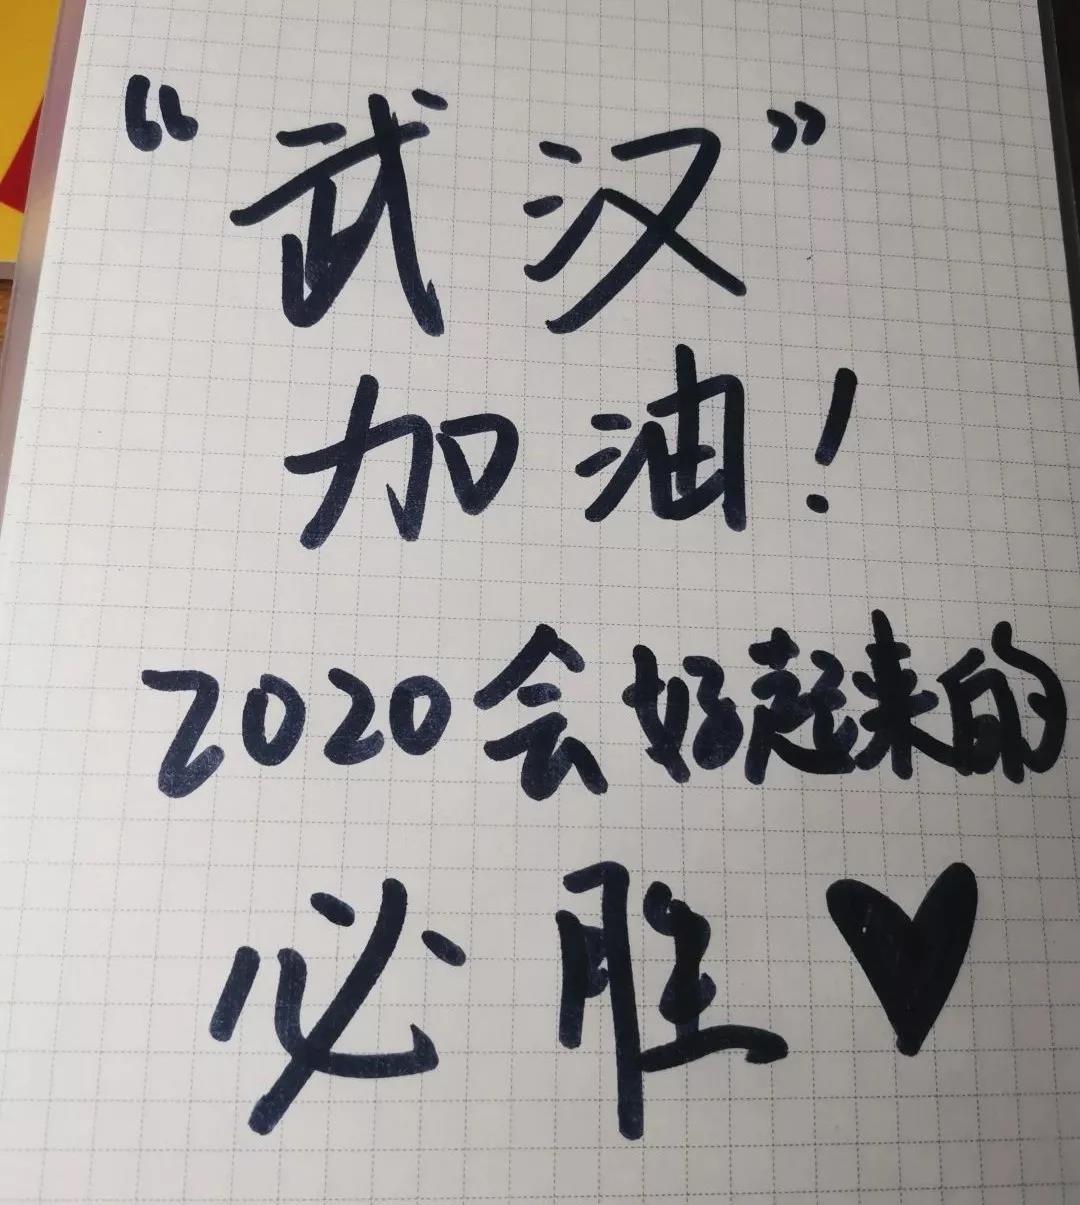 “武汉”
加油！
2020会好起来的
必胜♥